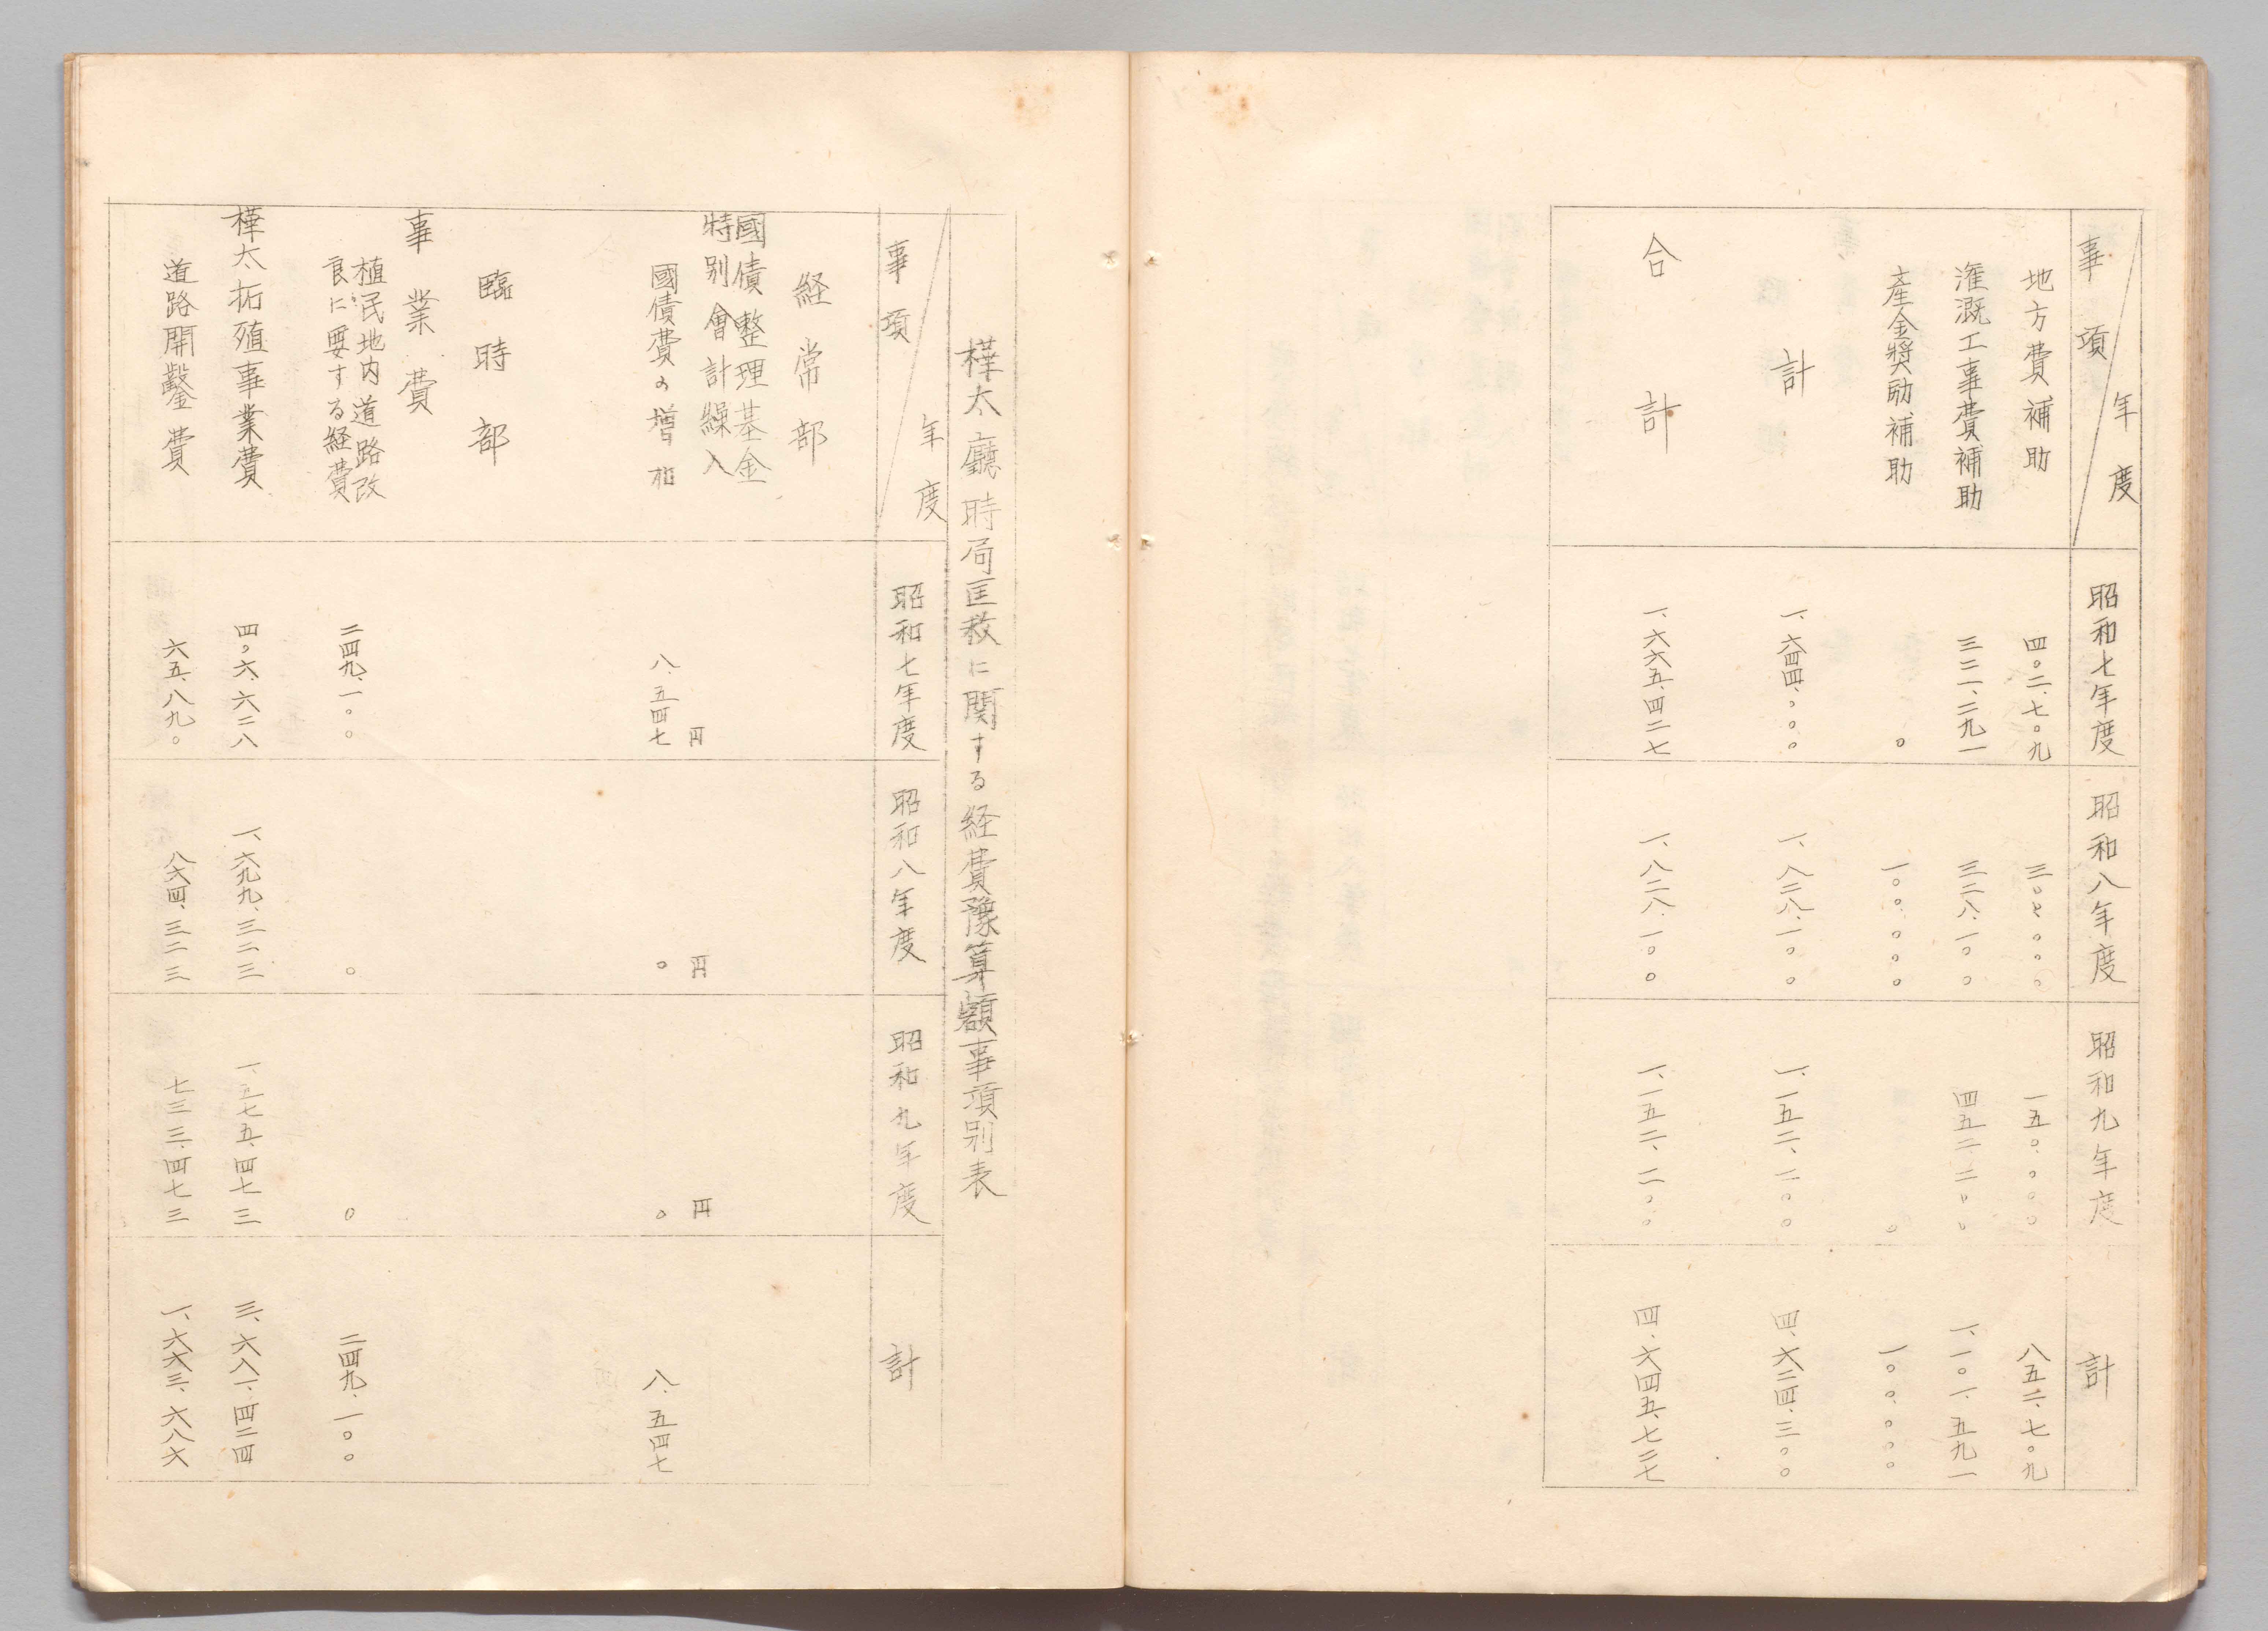 事項 年度 昭和七年度 昭和八年度 昭和九年度 計
地方費補助 四〇二、七〇九 三〇〇、〇〇〇 一五〇、〇〇〇 八五二、七〇九
灌漑工事費補助 三二一、二九一 三二八、一〇〇 四五二、二〇〇 一、一〇一、五九一
産金奨励補助 〇 一〇〇、〇〇〇 〇 一〇〇、〇〇〇
計 一、六四四、〇〇〇 一、八二八、一〇〇 一、一五二、二〇〇 四、六二四、三〇〇
合計 一、六六五、四二七 一、八二八、一〇〇 一、一五二、二〇〇 四、六四五、七二七
樺太廳時局匡救に関する経費豫算額事項別表
事項 年度 昭和七年度 昭和八年度 昭和九年度 計
経常部
國債整理基金
特別會計繰入 円 円 円
國債費の増加 八、五四七 〇 〇 八、五四七
臨時部
事業費
植民地内道路改
良に要する経費 二四九、一〇〇 〇 〇 二四九、一〇〇
樺太拓殖事業費 四〇六、六二八 一、六九九、三二三 一、五七五、四七三 三、六八一、四二四
道路開鑿費 六五、八九〇 八六四、三二三 七三三、四七三 一、六六三、六八六